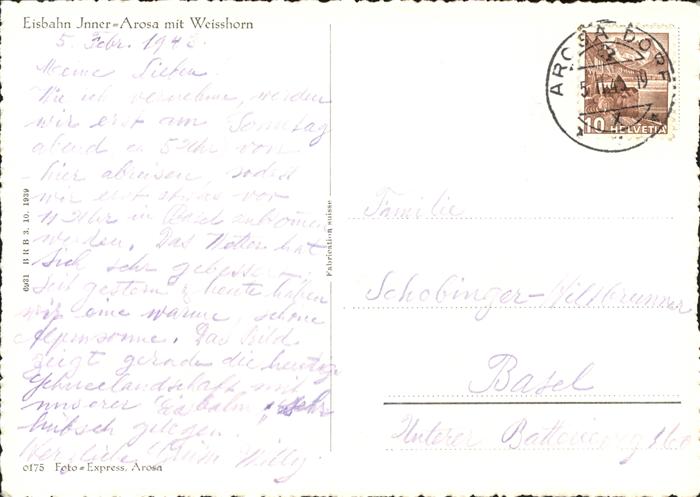 Eisbahn Jnner=Arosa mit Weisshorn
5. Febr. 1943.
Meine Lieben!
Wie ich vernehme, werden
wir erst am Sonntag
abend ca 5 Uhr von
hier abreisen, sodass
wir erst etwas vor
11 Uhr in Basel ankommen
werden. Das Wetter hat
sich sehr gebessert.
Seit gestern & heute haben
wir eine warme, schöne
Alpensonne. Das Bild
zeigt gerade die heutige
Schneelandschaft mit
unserer Eisbahn, sehr
hübsch gelegen.
Herzliche Grüsse Willy
0175 Foto=Express, Arosa
6931 BRB 3. 10. 1939
Fabrication suisse
AROSA DORF
10 HELVETIA
Familie
Schobinger-Willbrunner
Basel
Unterer Batterieweg